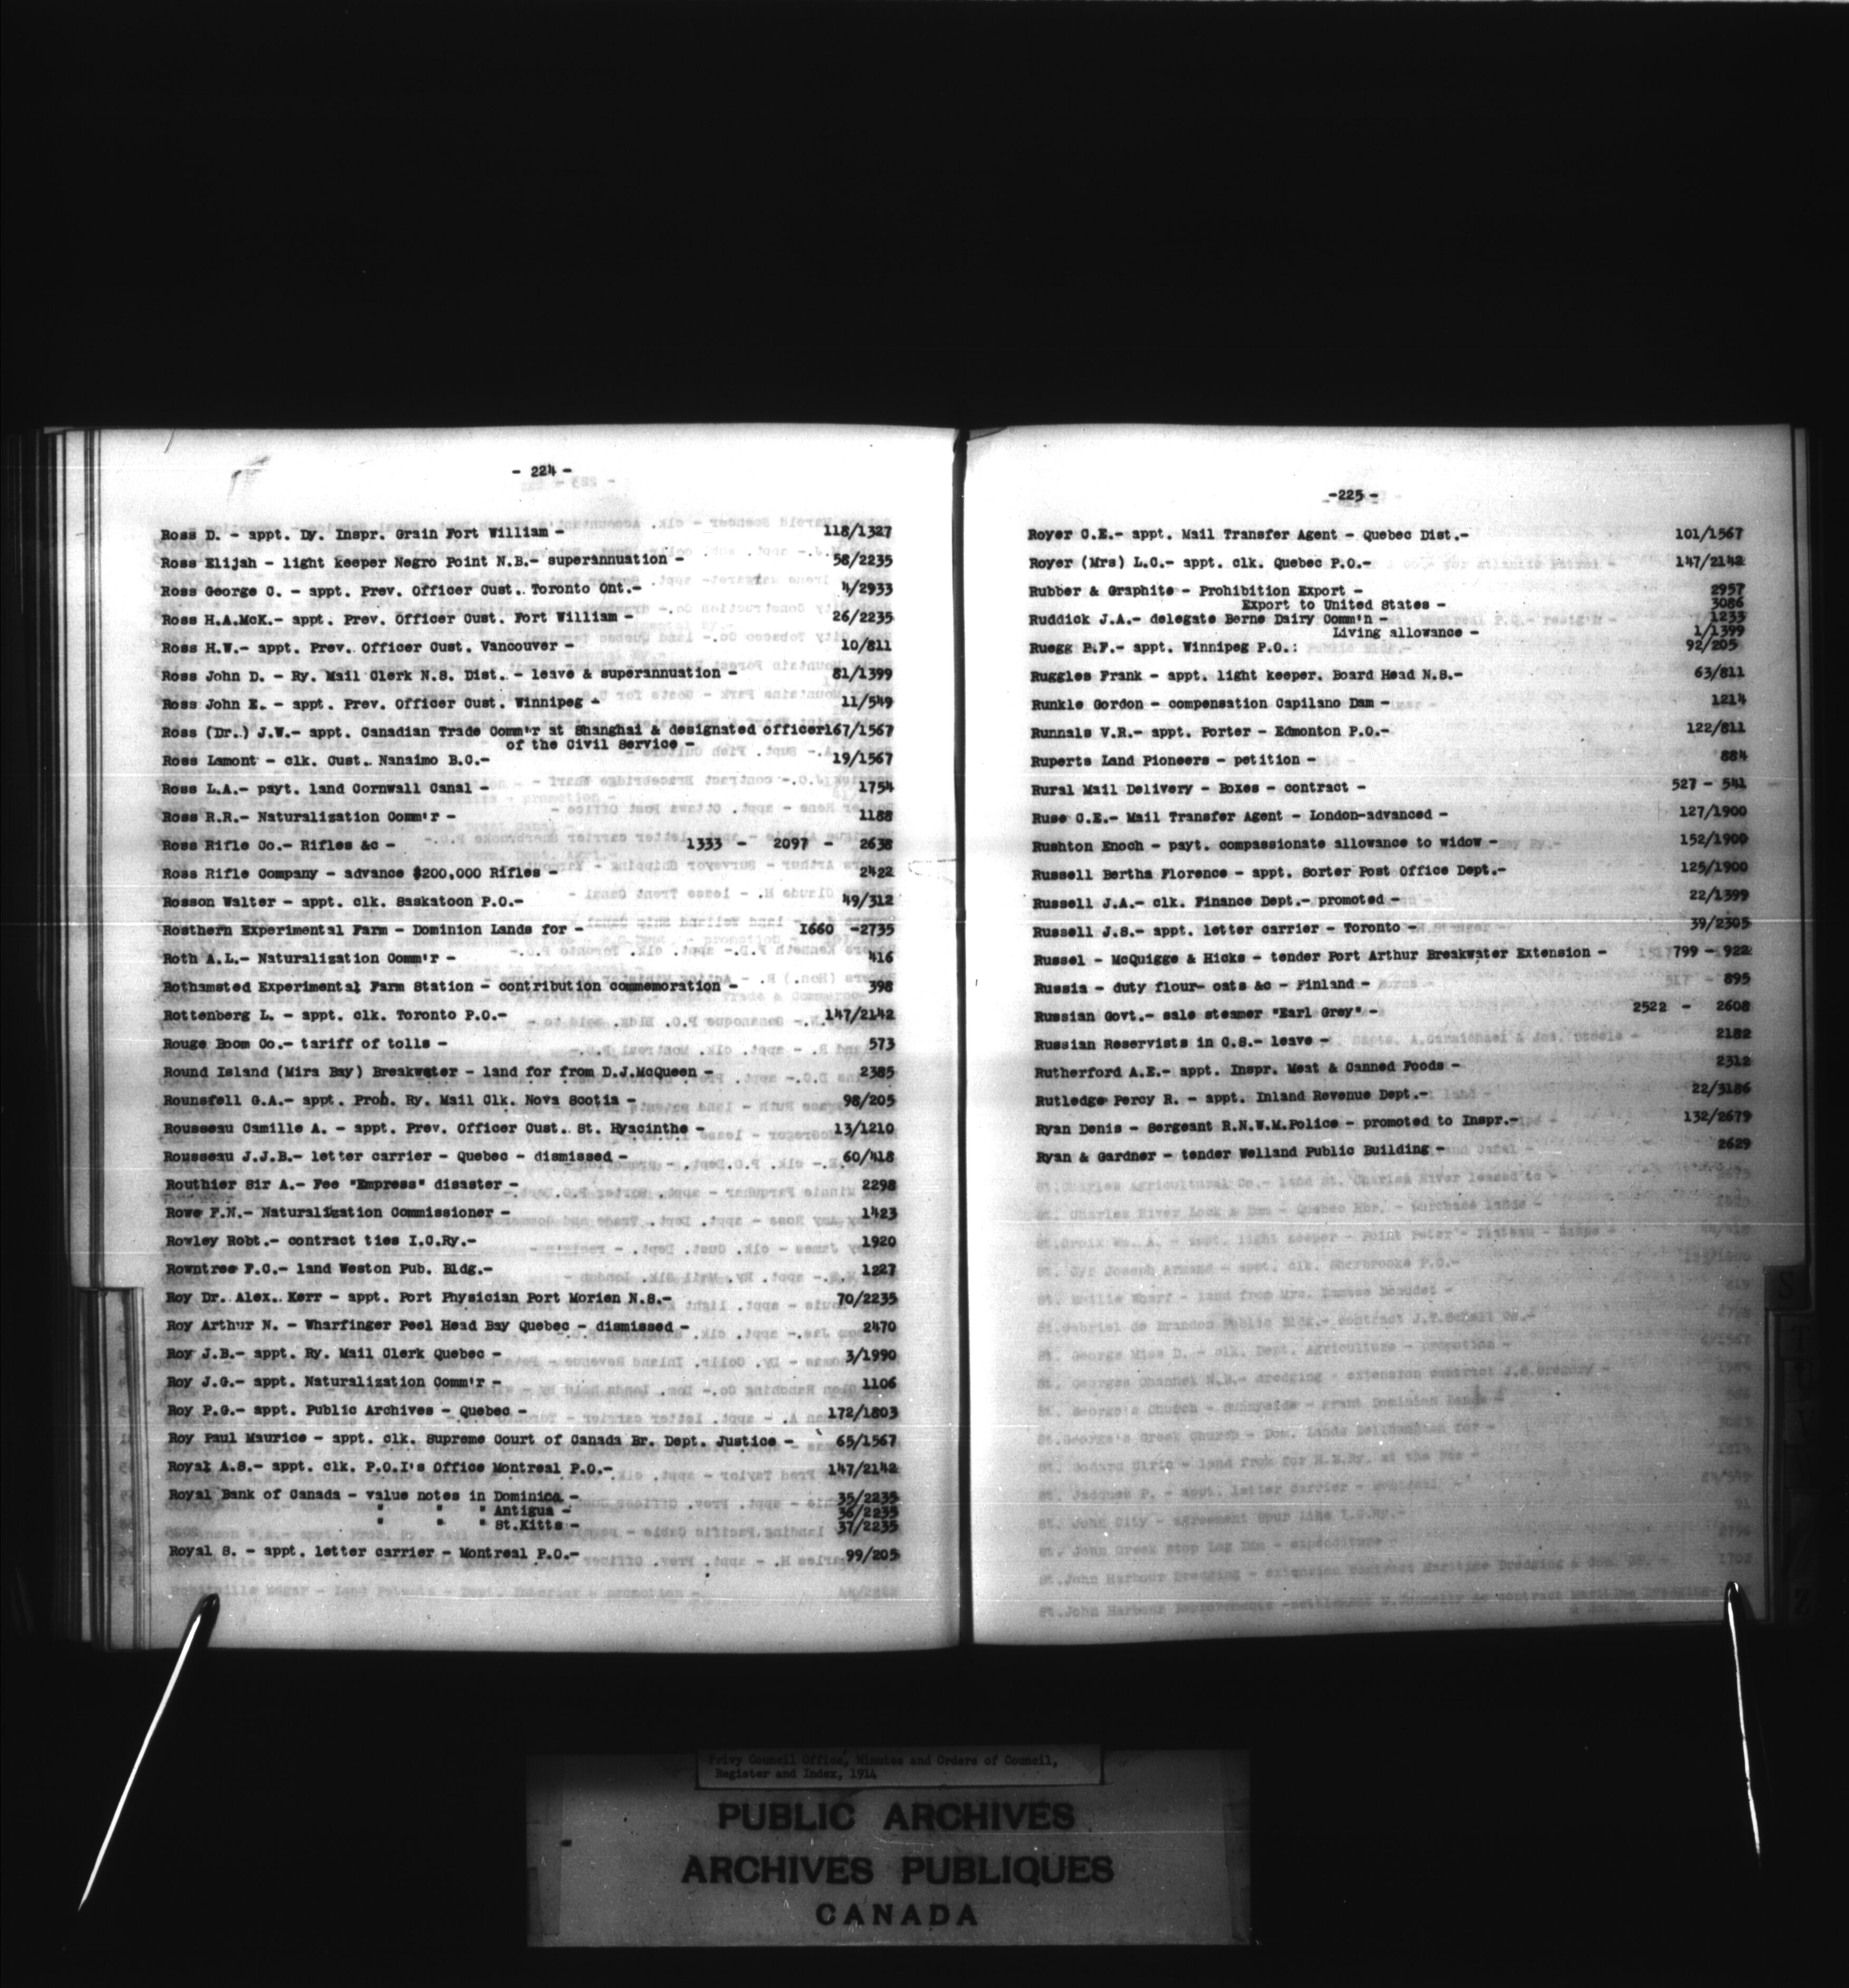 - 224 -
Ross D. - appt. Dy. Inspr. Grain Fort William - 118/1327
Ross Elijah - light keeper Negro Point N.B.- superannuation - 58/2235
Ross George C. - appt. Prev. Officer Cust. Toronto Ont.- 4/2933
Ross H.A.McK.- appt. Prev. Officer Cust. Fort William - 26/2235
Ross H.W.- appt. Prev. Officer Cust. Vancouver - 10/811
Ross John D. - Ry. Mail Clerk N.S. Dist. - leave & superannuation - 81/1399
Ross John E. - appt. Prev. Officer Cust. Winnipeg - 11/549
Ross (Dr.) J.W.- appt. Canadian Trade Comm'r at Shanghai & designated officer167/1567
of the Civil Service -
Ross Lamont - clk. Cust. Nanaimo B.C.- 19/1567
Ross L.A.- payt. land Cornwall Canal - 1754
Ross R.R.- Naturalization Comm'r - 1188
Ross Rifle Co.- Rifles &c - 1333 - 2097 - 2638
Ross Rifle Company - advance $200,000 Rifles - 2422
Rosson Walter - appt. clk. Saskatoon P.O.- 49/312
Rosthern Experimental Farm - Dominion Lands for - 1660 -2735
Roth A.L.- Naturalization Comm'r - 416
Rothamsted Experimental Farm Station - contribution commemoration - 398
Rottenberg L. - appt. clk. Toronto P.O.- 147/2142
Rouge Boom Co.- tariff of tolls - 573
Round Island (Mira Bay) Breakwater - land for from D.J.McQueen - 2385
Rounsfell G.A.- appt. Prob. Ry. Mail Clk. Nova Scotia - 98/205
Rousseau Camille A. - appt. Prev. Officer Cust. St. Hyacinthe - 13/1210
Rousseau J.J.B.- letter carrier - Quebec - dismissed - 60/418
Routhier Sir A.- Fee "Empress" disaster - 2298
Rowe F.N.- Naturalization Commissioner - 1423
Rowley Robt.- contract ties I.C.Ry.- 1920
Rowntree F.C.- land Weston Pub. Bldg.- 1227
Roy Dr. Alex. Kerr - appt. Port Physician Port Morien N.S.- 70/2235
Roy Arthur N. - Wharfinger Peel Head Bay Quebec - dismissed - 2470
Roy J.B.- appt. Ry. Mail Clerk Quebec - 3/1990
Roy J.G.- appt. Naturalization Comm'r - 1106
Roy P.G.- appt. Public Archives - Quebec - 172/1803
Roy Paul Maurice - appt. clk. Supreme Court of Canada Br. Dept. Justice - 65/1567
Royal A.S.- appt. clk. P.O.I's Office Montreal P.O.- 147/2142
Royal Bank of Canada - value notes in Dominica - 35/2235
" " " Antigua - 36/2235
" " " St.Kitts - 37/2235
Royal S. - appt. letter carrier - Montreal P.O.- 99/205
-225 -
Royer C.E.- appt. Mail Transfer Agent - Quebec Dist.- 101/1567
Royer (Mrs) L.C.- appt. clk. Quebec P.O.- 147/2142
Rubber & Graphite - Prohibition Export - 2957
Export to United States - 3086
Ruddick J.A.- delegate Berne Dairy Comm'n - 1233
Living allowance - 1/1399
Ruegg P.F.- appt. Winnipeg P.O.: 92/205
Ruggles Frank - appt. light keeper. Board Head N.S.- 63/811
Runkle Gordon - compensation Capilano Dam - 1214
Runnals V.R.- appt. Porter - Edmonton P.O.- 122/811
Ruperts Land Pioneers - petition - 884
Rural Mail Delivery - Boxes - contract - 527 - 541
Ruse C.E.- Mail Transfer Agent - London-advanced - 127/1900
Rushton Enoch - payt. compassionate allowance to widow - 152/1900
Russell Bertha Florence - appt. Sorter Post Office Dept.- 125/1900
Russell J.A.- clk. Finance Dept.- promoted - 22/1399
Russell J.S.- appt. letter carrier - Toronto - 39/2305
Russel - McQuigge & Hicks - tender Port Arthur Breakwater Extension - 799 - 922
Russia - duty flour- oats &c - Finland - 895
Russian Govt.- sale steamer "Earl Grey" - 2522 - 2608
Russian Reservists in C.S.- leave - 2182
Rutherford A.E.- appt. Inspr. Meat & Canned Foods - 2312
Rutledge Percy R. - appt. Inland Revenue Dept.- 22/3186
Ryan Denis - Sergeant R.N.W.M.Police - promoted to Inspr.- 132/2679
Ryan & Gardner - tender Welland Public Building - 2629
Privy Council Office, Minutes and Orders of Council,
Register and Index, 1914
PUBLIC ARCHIVES
ARCHIVES PUBLIQUES
CANADA